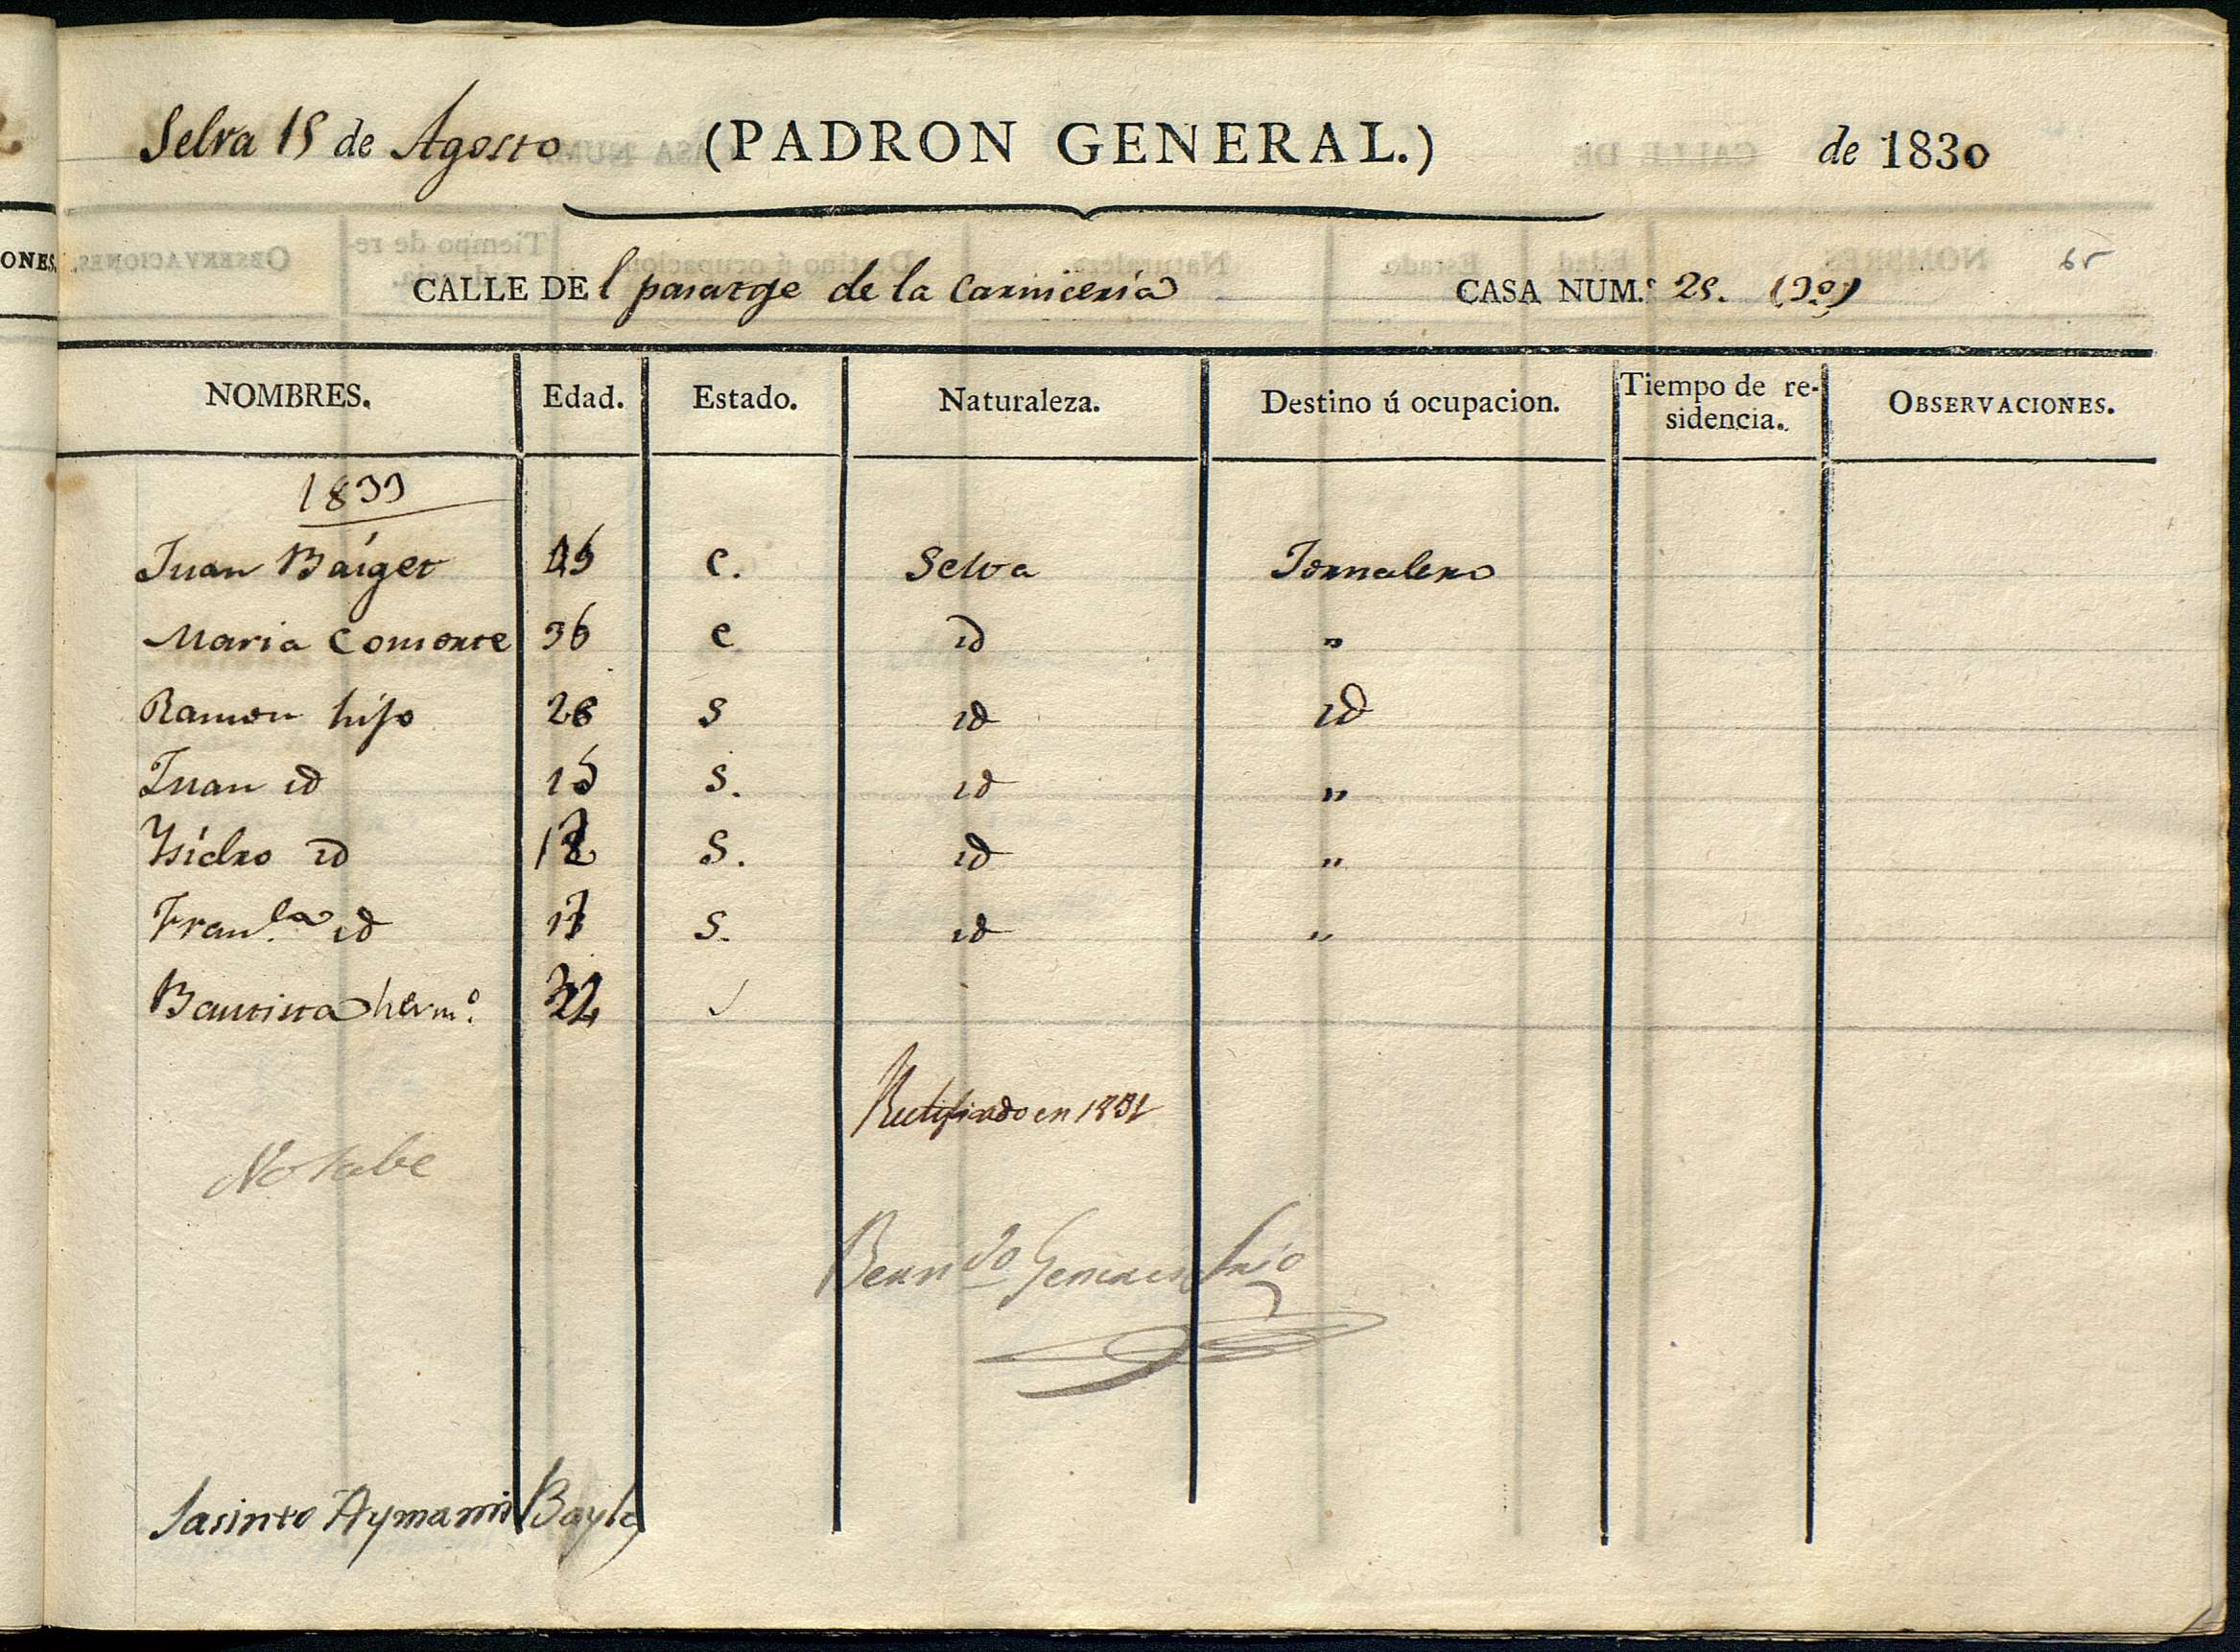 Selva 15 de Agosto (PADRON GENERAL.) de 1830
65
CALLE DEl pasatge de la Carniceria CASA NUM.º 25. (3º)
NOMBRES. Edad. Estado. Naturaleza. Destino ú ocupacion. Tiempo de residencia. OBSERVACIONES.
1833
Juan Baiget C. Selva Jornalero
Maria Consorte 36 C id "
Ramon hijo S id id
Juan id 15 S. id "
Ysidro id S. id "
Franca id S. id "
Bautista hermº
Rectificado en 1831
No sabe
Berndo
Jasinto Aymamí Bayle
ONES.